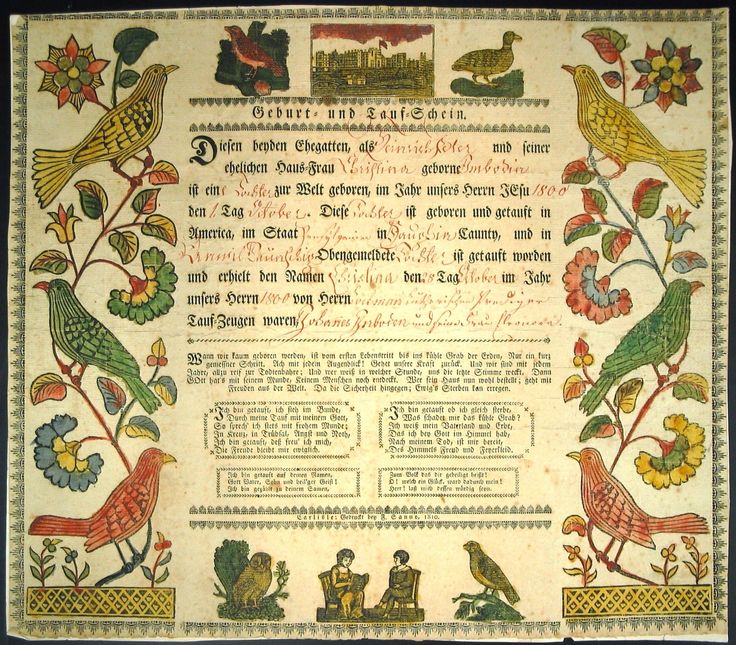 Geburt- und Tauf-Schein.
Diesen beyden Ehegatten, als Heinrich und seiner
ehelichen Haus-Frau Christina geborne Imbodin
ist ein Tochter zur Welt geboren, im Jahr unsers Herrn JEsu 1800
den 1 Tag October. Diese Tochter ist geboren und getauft in
America, im Staat in Dauphin Caunty, und in
Obengemeldete Tochter ist getauft worden
und erhielt den Namen Christina den 28 Tag October im Jahr
unsers Herrn 1800 von Herrn Lutherischen Prediger
Tauf-Zeugen waren Johannes Imboden und seine Frau Eleonora.
Wann wir kaum geboren werden, ist vom ersten Lebenstritt bis ins kühle Grab der Erden, Nur ein kurz
gemessner Schritt. Ach mit jedem Augenblick! Gehet unsre Kraft zurück. Und wir sind mit jedem
Jahre, allzu reif zur Todtenbahre; Und wer weiß in welcher Stunde, uns die letzte Stimme weckt. Dann
GOtt hat's mit seinem Munde, Keinem Menschen noch endeckt. Wer sein Haus nun wohl bestellt; geht mit
Freuden aus der Welt. Da die Sicherheit hingegen; Ewig's Sterben kan erregen.
Ich bin getauft, ich steh im Bunde,
Durch meine Tauf mit meinem Gott,
So sprech' ich stets mit frohem Munde;
In Kreuz, in Trübsal, Angst und Noth,
Ich bin getauft, deß freu' ich mich,
Die Freude bleibt mir ewiglich.
Ich bin getauft ob ich gleich sterbe,
Was schadet mir das kühle Grab?
Ich weiß mein Vaterland und Erbe,
Das ich bey Gott im Himmel hab,
Nach meinem Tod, ist mir bereit,
Des Himmels Freud und Feyerkleid.
Ich bin getauft auf deinen Namen,
Gott Vater, Sohn und heil'ger Geist!
Ich bin gezählt zu deinem Samen,
Zum Volk das dir geheiligt heißt!
O! welch ein Glück, ward dadurch mein!
Herr! laß mich dessen würdig seyn.
Carlisle: Gedruckt bey F. Sanno, 1810.